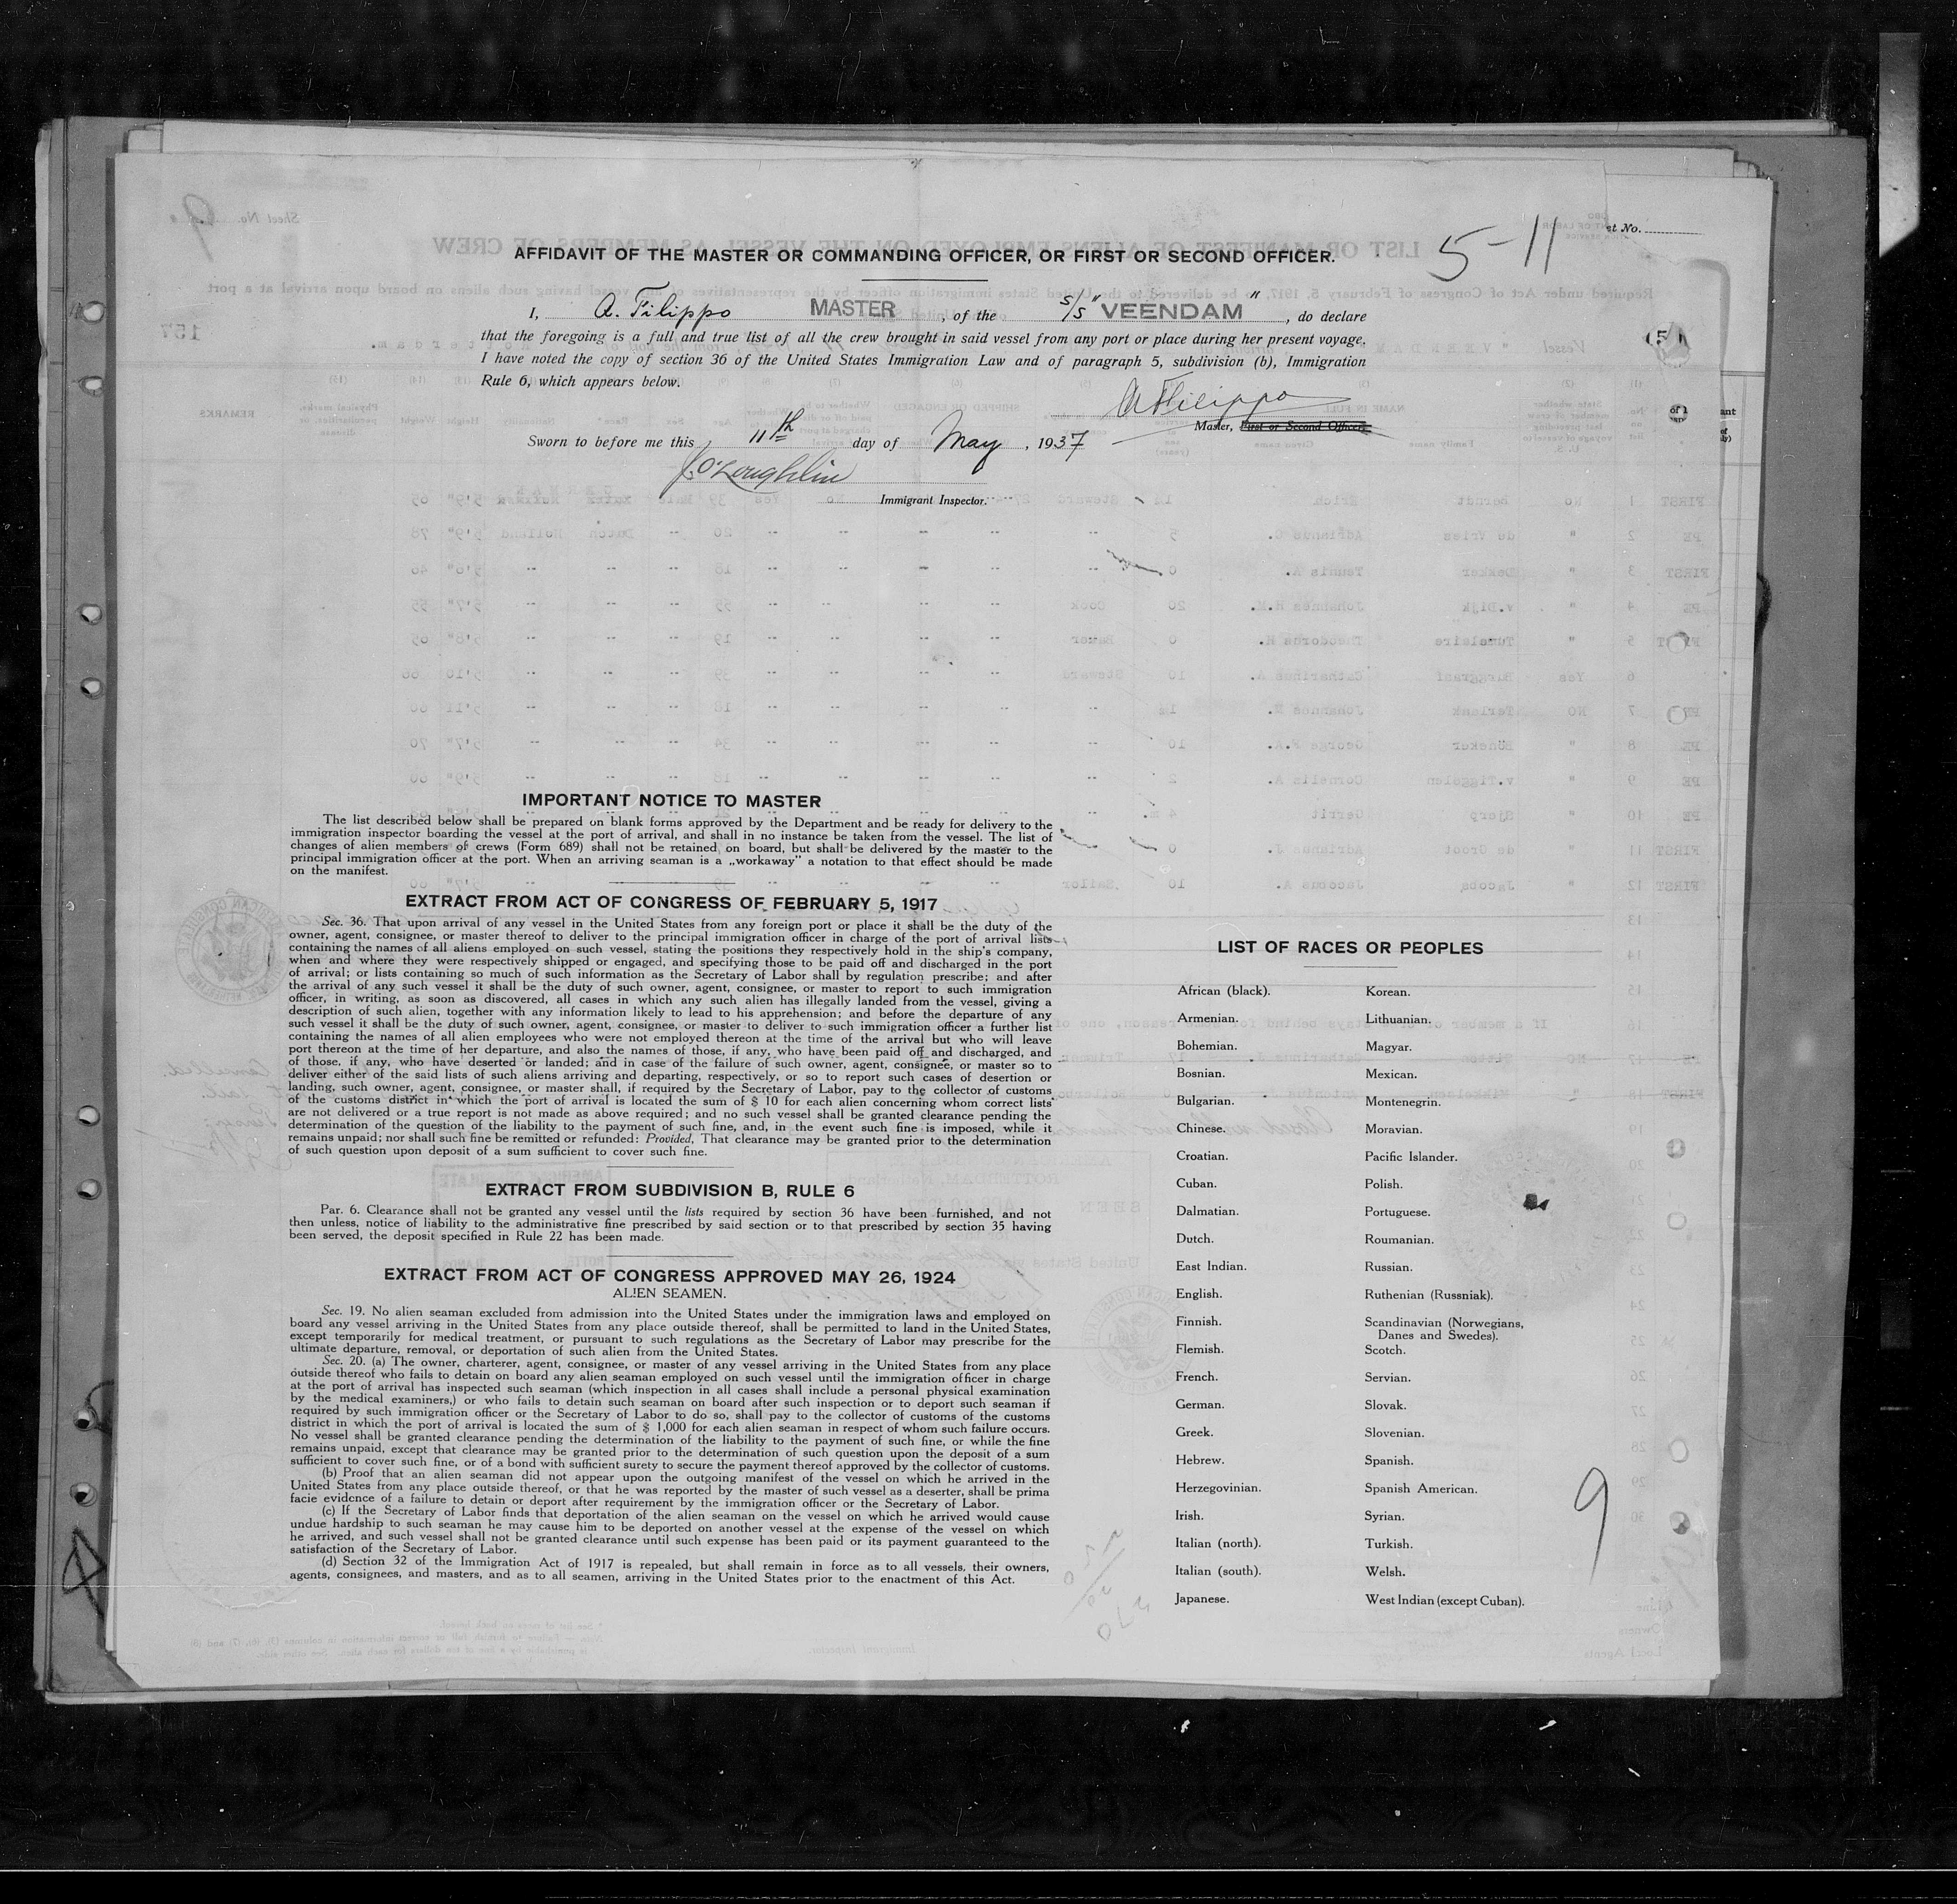 5-11
et No.
AFFIDAVIT OF THE MASTER OR COMMANDING OFFICER, OR FIRST OR SECOND OFFICER.
I, A. Filippo MASTER, of the s/s "VEENDAM", do declare
that the foregoing is a full and true list of all the crew brought in said vessel from any port or place during her present voyage.
I have noted the copy of section 36 of the United States Immigration Law and of paragraph 5, subdivision (b), Immigration
Rule 6, which appears below.
A Filippo
Master, First or Second Officer.
Sworn to before me this 11th day of May, 1937
J. O'Loughlin
Immigrant Inspector.
IMPORTANT NOTICE TO MASTER
The list described below shall be prepared on blank forms approved by the Department and be ready for delivery to the
immigration inspector boarding the vessel at the port of arrival, and shall in no instance be taken from the vessel. The list of
changes of alien members of crews (Form 689) shall not be retained on board, but shall be delivered by the master to the
principal immigration officer at the port. When an arriving seaman is a „workaway" a notation to that effect should be made
on the manifest.
EXTRACT FROM ACT OF CONGRESS OF FEBRUARY 5, 1917
Sec. 36. That upon arrival of any vessel in the United States from any foreign port or place it shall be the duty of the
owner, agent, consignee, or master thereof to deliver to the principal immigration officer in charge of the port of arrival lists
containing the names of all aliens employed on such vessel, stating the positions they respectively hold in the ship's company,
when and where they were respectively shipped or engaged, and specifying those to be paid off and discharged in the port
of arrival; or lists containing so much of such information as the Secretary of Labor shall by regulation prescribe; and after
the arrival of any such vessel it shall be the duty of such owner, agent, consignee, or master to report to such immigration
officer, in writing, as soon as discovered, all cases in which any such alien has illegally landed from the vessel, giving a
description of such alien, together with any information likely to lead to his apprehension; and before the departure of any
such vessel it shall be the duty of such owner, agent, consignee, or master to deliver to such immigration officer a further list
containing the names of all alien employees who were not employed thereon at the time of the arrival but who will leave
port thereon at the time of her departure, and also the names of those, if any, who have been paid off and discharged, and
of those, if any, who have deserted or landed; and in case of the failure of such owner, agent, consignee, or master so to
deliver either of the said lists of such aliens arriving and departing, respectively, or so to report such cases of desertion or
landing, such owner, agent, consignee, or master shall, if required by the Secretary of Labor, pay to the collector of customs
of the customs district in which the port of arrival is located the sum of $ 10 for each alien concerning whom correct lists
are not delivered or a true report is not made as above required; and no such vessel shall be granted clearance pending the
determination of the question of the liability to the payment of such fine, and, in the event such fine is imposed, while it
remains unpaid; nor shall such fine be remitted or refunded: Provided, That clearance may be granted prior to the determination
of such question upon deposit of a sum sufficient to cover such fine.
EXTRACT FROM SUBDIVISION B, RULE 6
Par. 6. Clearance shall not be granted any vessel until the lists required by section 36 have been furnished, and not
then unless, notice of liability to the administrative fine prescribed by said section or to that prescribed by section 35 having
been served, the deposit specified in Rule 22 has been made.
EXTRACT FROM ACT OF CONGRESS APPROVED MAY 26, 1924
ALIEN SEAMEN.
Sec. 19. No alien seaman excluded from admission into the United States under the immigration laws and employed on
board any vessel arriving in the United States from any place outside thereof, shall be permitted to land in the United States,
except temporarily for medical treatment, or pursuant to such regulations as the Secretary of Labor may prescribe for the
ultimate departure, removal, or deportation of such alien from the United States.
Sec. 20. (a) The owner, charterer, agent, consignee, or master of any vessel arriving in the United States from any place
outside thereof who fails to detain on board any alien seaman employed on such vessel until the immigration officer in charge
at the port of arrival has inspected such seaman (which inspection in all cases shall include a personal physical examination
by the medical examiners,) or who fails to detain such seaman on board after such inspection or to deport such seaman if
required by such immigration officer or the Secretary of Labor to do so, shall pay to the collector of customs of the customs
district in which the port of arrival is located the sum of $ 1,000 for each alien seaman in respect of whom such failure occurs.
No vessel shall be granted clearance pending the determination of the liability to the payment of such fine, or while the fine
remains unpaid, except that clearance may be granted prior to the determination of such question upon the deposit of a sum
sufficient to cover such fine, or of a bond with sufficient surety to secure the payment thereof approved by the collector of customs.
(b) Proof that an alien seaman did not appear upon the outgoing manifest of the vessel on which he arrived in the
United States from any place outside thereof, or that he was reported by the master of such vessel as a deserter, shall be prima
facie evidence of a failure to detain or deport after requirement by the immigration officer or the Secretary of Labor.
(c) If the Secretary of Labor finds that deportation of the alien seaman on the vessel on which he arrived would cause
undue hardship to such seaman he may cause him to be deported on another vessel at the expense of the vessel on which
he arrived, and such vessel shall not be granted clearance until such expense has been paid or its payment guaranteed to the
satisfaction of the Secretary of Labor.
(d) Section 32 of the Immigration Act of 1917 is repealed, but shall remain in force as to all vessels, their owners,
agents, consignees, and masters, and as to all seamen, arriving in the United States prior to the enactment of this Act.
LIST OF RACES OR PEOPLES
African (black).
Armenian.
Bohemian.
Bosnian.
Bulgarian.
Chinese.
Croatian.
Cuban.
Dalmatian.
Dutch.
East Indian.
English.
Finnish.
Flemish.
French.
German.
Greek.
Hebrew.
Herzegovinian.
Irish.
Italian (north).
Italian (south).
Japanese.
Korean.
Lithuanian.
Magyar.
Mexican.
Montenegrin.
Moravian.
Pacific Islander.
Polish.
Portuguese.
Roumanian.
Russian.
Ruthenian (Russniak).
Scandinavian (Norwegians,
Danes and Swedes).
Scotch.
Servian.
Slovak.
Slovenian.
Spanish.
Spanish American.
Syrian.
Turkish.
Welsh.
West Indian (except Cuban).
9